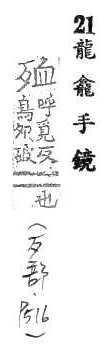 21龍龕手鏡
殈呼覓反
鳥卵破也
(歹部.P516)